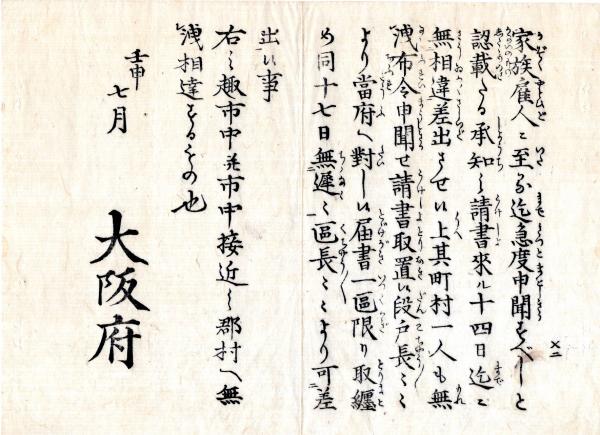 家族雇人ニ至る迄急度申聞すべしと
認載たる承知之請書來ル十四日迄ニ
無相違差出させ候上其町村一人も無
洩布令申聞せ請書取置候段戸長〻〻
より當府へ對し候届書一區限り取纏
め同十七日無遲〻區長〻〻より可差
出候事
右之趣市中並市中接近之郡村へ無
洩相達するもの也
壬申
七月
大阪府